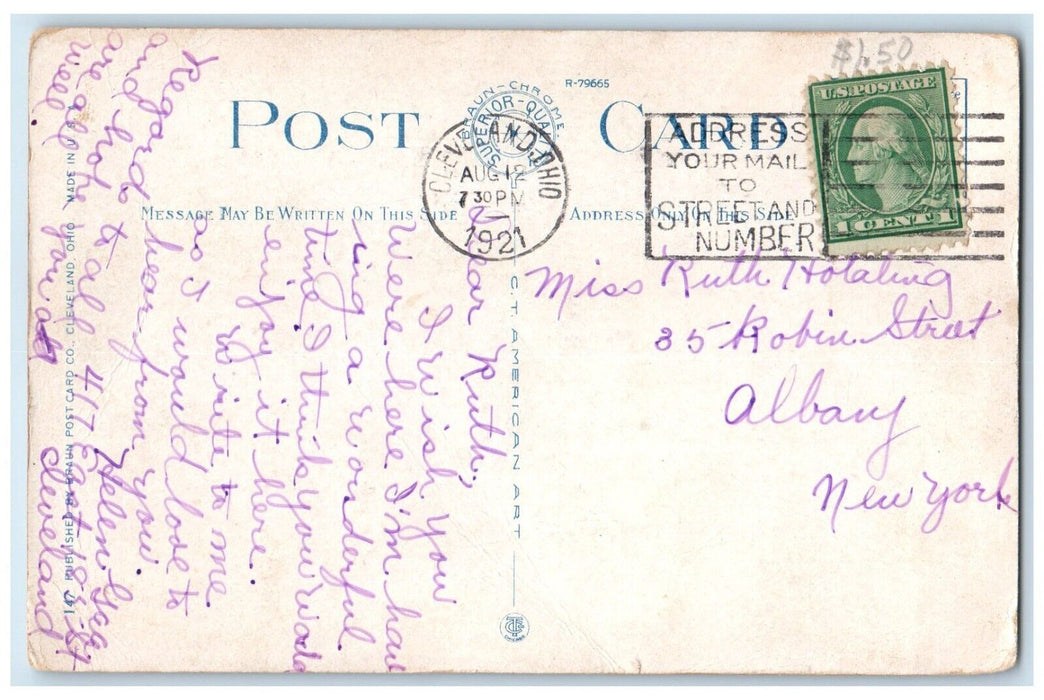 $1.50
R-79665
POST CARD
BRAUN-CHROME
SUPERIOR-QUALITY
U.S. POSTAGE
1 CENT 1
CLEVELAND, OHIO
AUG 12
7 30 PM
1921
ADDRESS
YOUR MAIL
TO
STREET AND
NUMBER
MESSAGE MAY BE WRITTEN ON THIS SIDE
ADDRESS ONLY ON THIS SIDE
Miss Ruth Hotaling
35 Robin Street
Albany
New York
Dear Ruth,
I wish you
were here I'm hav
ing a wonderful
time I think you would
enjoy it here.
Write to me
as I would love to
hear from you.
Regards to all
and hope you
are all
well
Helen
417 E
St
Cleveland
C.T. AMERICAN ART
147 PUBLISHED BY BRAUN POST CARD CO., CLEVELAND, OHIO MADE IN U.